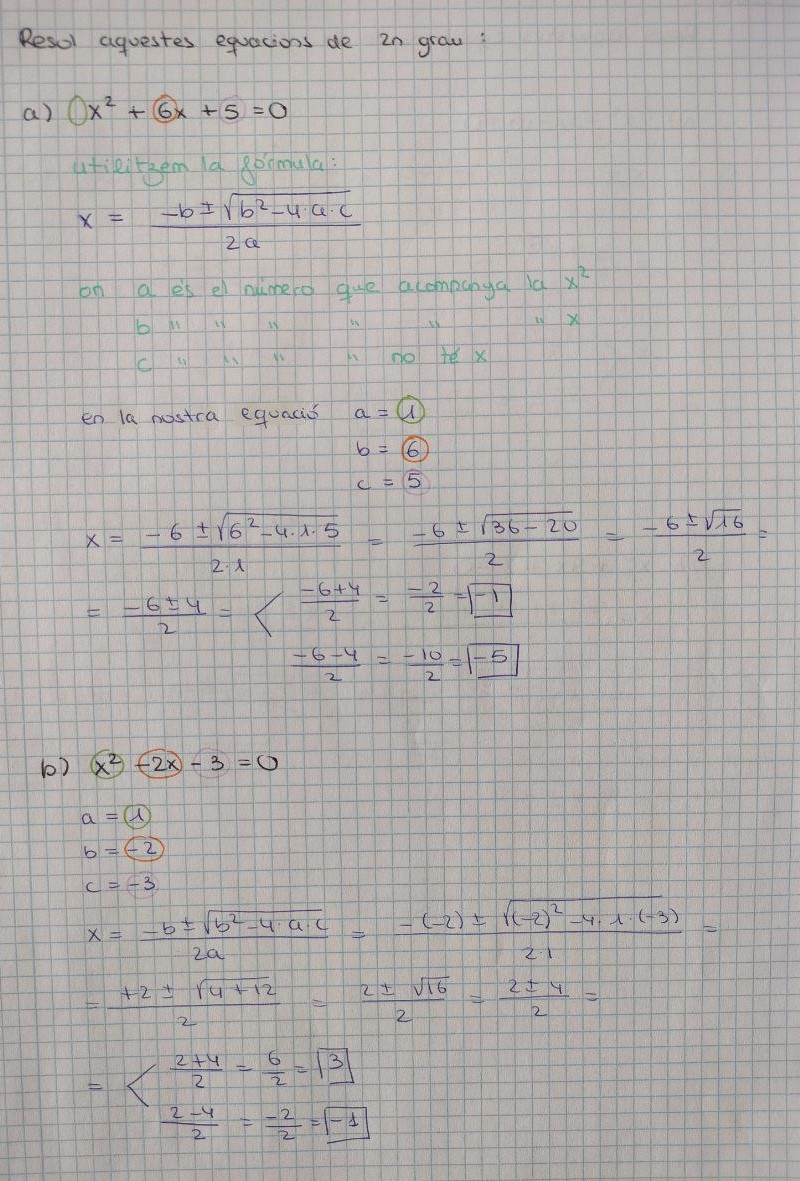 Resol aquestes equacions de 2n grau :
a) x² + 6x + 5 = 0
utilitzem la fórmula:
x = (-b ± √(b² - 4·a·c)) / 2a
on a és el número que acompanya la x²
b " " " " " " x
c " " " " no té x
en la nostra equació a = 1
b = 6
c = 5
x = (-6 ± √(6² - 4·1·5)) / (2·1) = (-6 ± √(36 - 20)) / 2 = (-6 ± √16) / 2 =
= (-6 ± 4) / 2 = < (-6+4) / 2 = -2 / 2 = -1
(-6-4) / 2 = -10 / 2 = -5
b) x² -2x - 3 = 0
a = 1
b = -2
c = -3
x = (-b ± √(b² - 4·a·c)) / 2a = (-(-2) ± √((-2)² - 4·1·(-3))) / (2·1) =
= (+2 ± √(4+12)) / 2 = (2 ± √16) / 2 = (2 ± 4) / 2 =
= < (2+4) / 2 = 6 / 2 = 3
(2-4) / 2 = -2 / 2 = -1